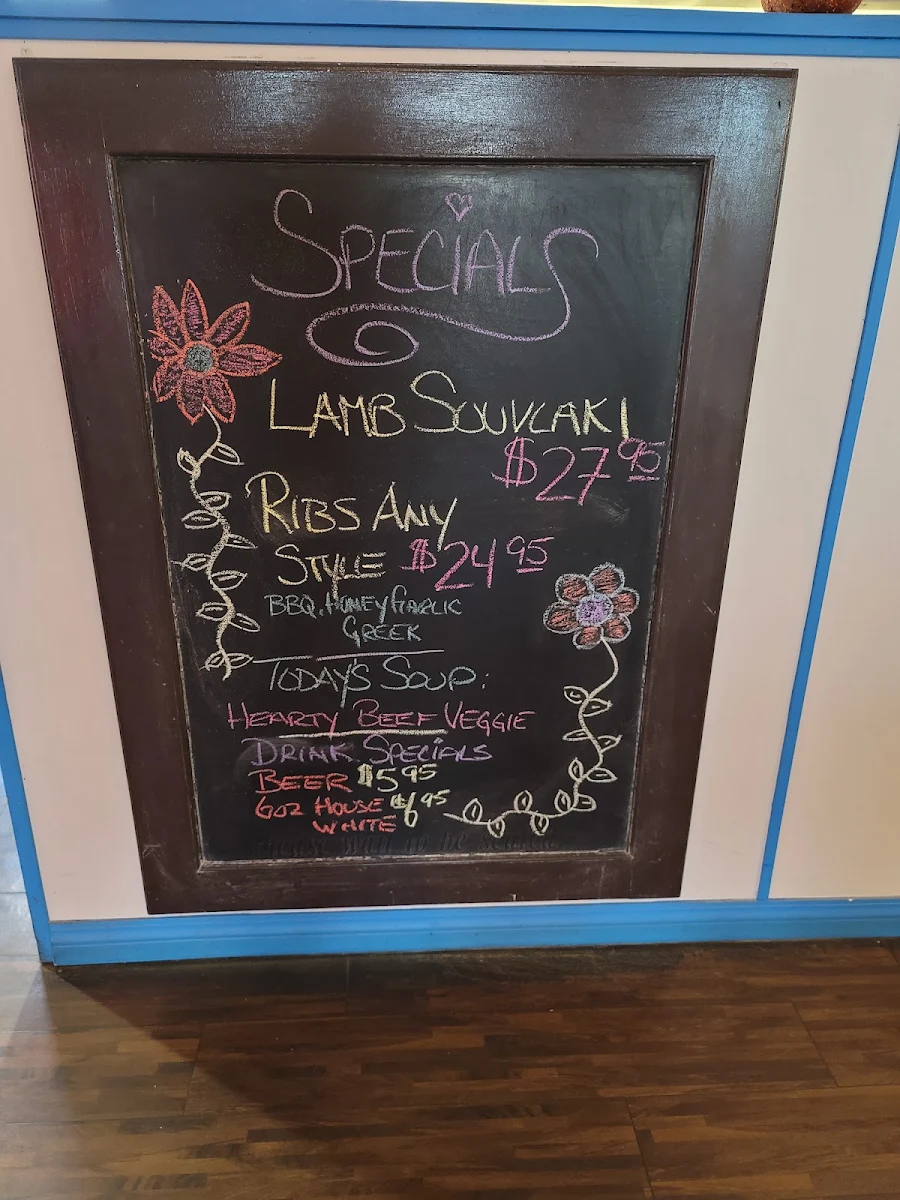 SPECIALS
LAMB SOUVLAKI
$27.95
RIBS ANY
STYLE $24.95
BBQ, HONEY GARLIC
GREEK
TODAY'S SOUP:
HEARTY BEEF VEGGIE
DRINK SPECIALS
BEER $5.95
6OZ HOUSE $6.95
WHITE